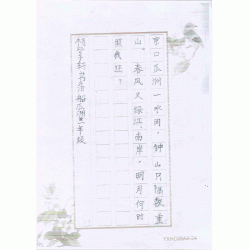 京口瓜洲一水间，钟山只隔数重
山。春风又绿江南岸，明月何时
照我还？
轩书泊船瓜洲一年级